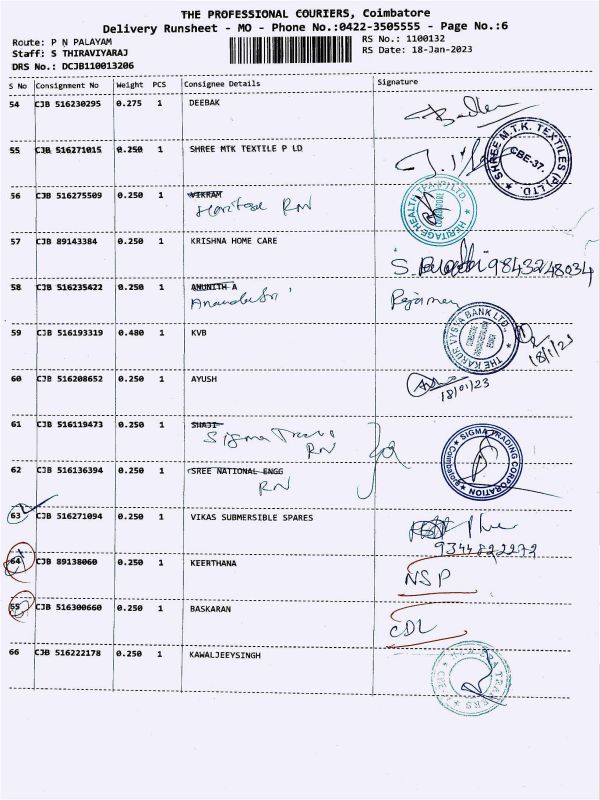 THE PROFESSIONAL COURIERS, Coimbatore
Delivery Runsheet - MO - Phone No.:0422-3505555 - Page No.:6
Route: P N PALAYAM
RS No.: 1100132
Staff: S THIRAVIYARAJ
RS Date: 18-Jan-2023
DRS No.: DCJB110013206
S No Consignment No Weight PCS Consignee Details Signature
54 CJB 516230295 0.275 1 DEEBAK
55 CJB 516271015 0.250 1 SHREE MTK TEXTILE P LD
SHREE M.T.K. TEXTILES (P) LTD. CBE-37.
56 CJB 516275509 0.250 1 VIKRAM
Heritage RN
HERITAGE HEALTH TPA (P) LTD. COIMBATORE
57 CJB 89143384 0.250 1 KRISHNA HOME CARE
S. 9843248034
58 CJB 516235422 0.250 1 ANUNITH A
59 CJB 516193319 0.480 1 KVB
THE KARUR VYSYA BANK LTD.
18/1/23
60 CJB 516208652 0.250 1 AYUSH
18/01/23
61 CJB 516119473 0.250 1 SHAJI
Sigma RN
SIGMA TRADING CORPORATION Coimbatore
62 CJB 516136394 0.250 1 SREE NATIONAL ENGG
RN
63 CJB 516271094 0.250 1 VIKAS SUBMERSIBLE SPARES
9344822272
64 CJB 89138060 0.250 1 KEERTHANA
NSP
65 CJB 516300660 0.250 1 BASKARAN
CDL
66 CJB 516222178 0.250 1 KAWALJEEYSINGH